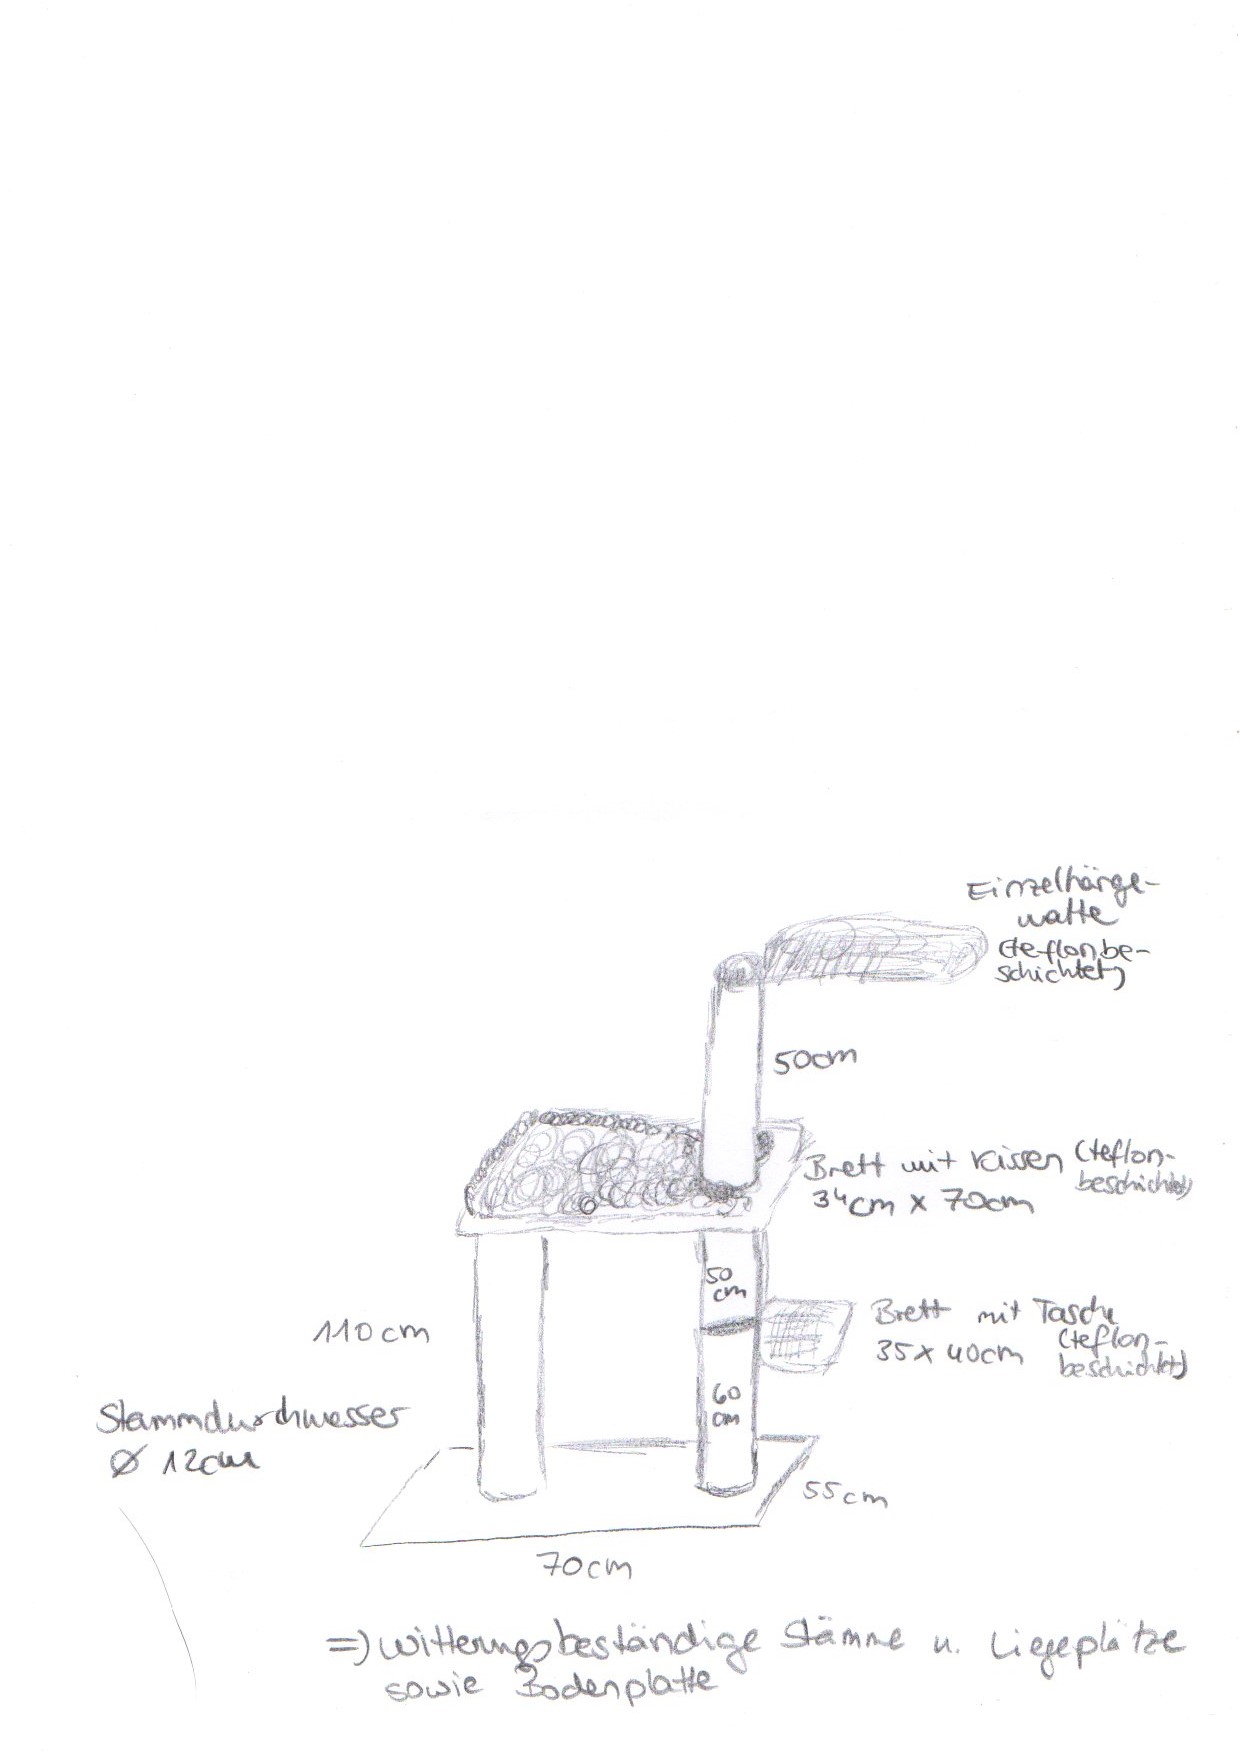 Einzelhänge-
matte
(teflonbe-
schichtet)
50cm
Brett mit Kissen (teflon-
beschichtet)
34cm x 70cm
50
cm
110cm
Brett mit Tasche
35 x 40cm (teflon-
beschichtet)
60
cm
Stammdurchmesser
Ø 12cm
55cm
70cm
=) Witterungsbeständige Stämme u. Liegeplätze
sowie Bodenplatte